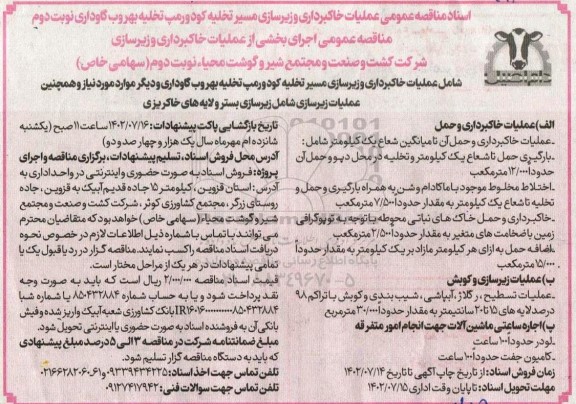 اسناد مناقصه عمومی عملیات خاکبرداری و زیرسازی مسیر تخلیه کود و رمپ تخلیه بهر وب گاوداری نوبت دوم
مناقصه عمومی اجرای بخشی از عملیات خاکبرداری و زیرسازی
شرکت کشت و صنعت و مجتمع شیر و گوشت محیاء نوبت دوم (سهامی خاص)
شامل عملیات خاکبرداری و زیرسازی مسیر تخلیه کود و رمپ تخلیه بهر وب گاوداری و دیگر موارد مورد نیاز و همچنین
عملیات زیرسازی شامل زیرسازی بستر و لایه های خاکریزی
الف) عملیات خاکبرداری و حمل
ـ عملیات خاکبرداری و حمل آن تا میانگین شعاع یک کیلومتر شامل:
ـ بارگیری حمل تا شعاع یک کیلومتر و تخلیه در محل دپو و حمل آن
حدودا ۱۲/۰۰۰ مترمکعب
ـ اختلاط مخلوط موجود با ماکادام و شن به همراه بارگیری و حمل و
تخلیه تا شعاع یک کیلومتر به مقدار حدودا ۷/۵۰۰ مترمکعب
ـ خاکبرداری و حمل خاک های نباتی محوطه با توجه به توپوگرافی
زمین با ضخامت های متغیر به مقدار حدودا ۲/۵۰۰ مترمکعب
ـ اضافه حمل به ازای هر کیلومتر مازاد بر یک کیلومتر به مقدار حدودا
۱۵/۰۰۰ مترمکعب
ب) عملیات زیرسازی و کوبش
ـ عملیات تسطیح، رگلاژ، آبپاشی، شیب بندی و کوبش با تراکم ۹۸
درصد لایه های ۱۵ تا ۲۰ سانتیمتر به مقدار حدودا ۳۰/۰۰۰ مترمربع
پ) اجاره ساعتی ماشین آلات جهت انجام امور متفرقه
ـ لودر حدودا ۱۰۰ ساعت
ـ کامیون جفت حدودا ۱۰۰ ساعت
زمان فروش اسناد: از تاریخ چاپ آگهی تا تاریخ ۱۴۰۲/۰۷/۱۴
مهلت تحویل اسناد: تا پایان وقت اداری ۱۴۰۲/۰۷/۱۵
تاریخ بازگشایی پاکت پیشنهادات: ۱۴۰۲/۰۷/۱۶ ساعت ۱۱ صبح (یکشنبه
شانزده ام مهرماه سال یک هزار و چهارصد و دو)
آدرس محل فروش اسناد، تسلیم پیشنهادات، برگزاری مناقصه و اجرای
پروژه: فروش اسناد به صورت حضوری و اینترنتی در واحد اداری به
آدرس: استان قزوین، کیلومتر ۱۵ جاده قدیم آبیک به قزوین، جاده
روستای زرگر، مجتمع کشاورزی کوثر، شرکت کشت و صنعت و مجتمع
شیر و گوشت محیاء (سهامی خاص) خواهد بود که متقاضیان محترم
می توانند با تماس با شماره ذیل اطلاعات لازم در خصوص نحوه
دریافت اسناد مناقصه را کسب نمایند. مناقصه گزار در رد یا قبول یک یا
تمامی پیشنهادات در هر یک از مراحل مختار است.
قیمت اسناد مناقصه ۲/۰۰۰/۰۰۰ ریال است که باید به صورت وجه
نقد پرداخت شود و یا به حساب شماره ۸۵۰۴۳۲۸۸۴ یا شماره شبا
بانک کشاورزی شعبه آبیک واریز شده و فیش
بانکی آن به فروشنده اسناد به صورت حضوری یا اینترنتی تحویل شود.
مبلغ ضمانتنامه شرکت در مناقصه ۳ الی ۵ درصد مبلغ پیشنهادی
که باید به دستگاه مناقصه گزار تسلیم شود.
تلفن تماس جهت اخذ اسناد: ۰۹۳۳۹۴۳۴۲۲۵ و ۶۱-۰۲۱۶۶۲۸۲۰۶۰
تلفن تماس جهت سوالات فنی: ۰۹۱۲۷۴۱۷۹۴۲